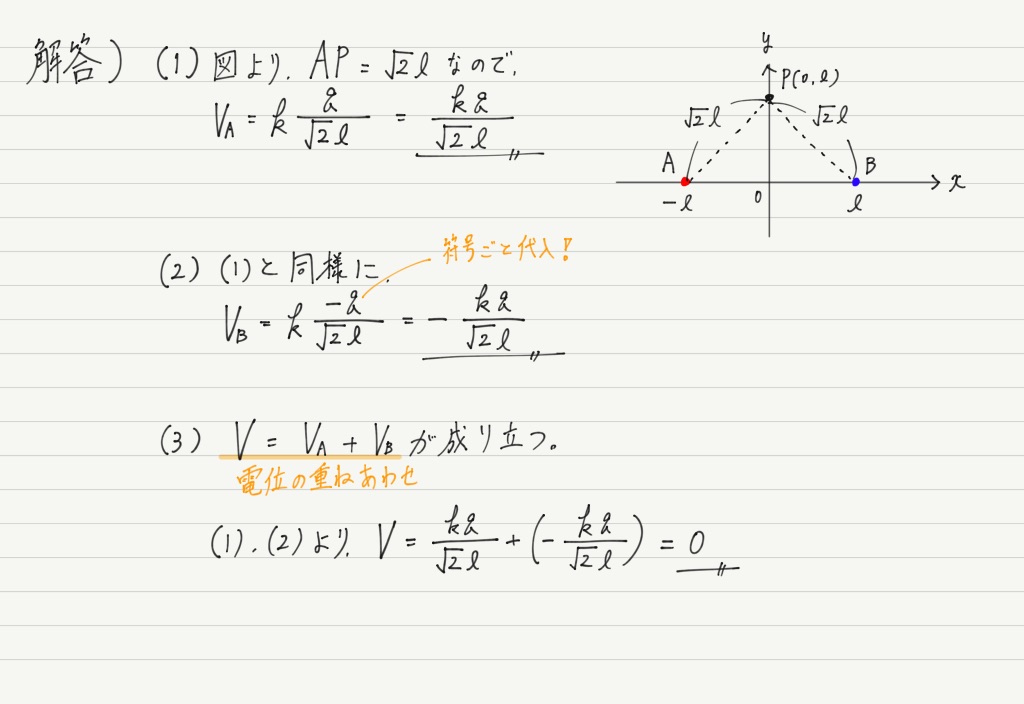 解答) (1) 図より、AP = √2 l なので、
V_A = k q/(√2 l) = kq/(√2 l)
y
P(0, l)
√2 l √2 l
A B
-l 0 l x
(2) (1)と同様に、
符号ごと代入!
V_B = k -q/(√2 l) = - kq/(√2 l)
(3) V = V_A + V_B が成り立つ。
電位の重ねあわせ
(1)、(2)より、V = kq/(√2 l) + (- kq/(√2 l)) = 0